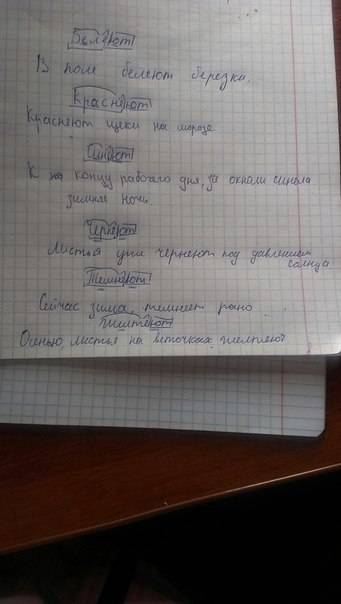 Белеют
В поле белеют березки.
Краснеют
Краснеют щеки на морозе
Синеют
К концу рабочего дня, за окнами синела
зимняя ночь.
Чернеют
Листья уже чернеют под давлением
солнца
Темнеют
Сейчас зима, темнеет рано
желтеют
Осенью, листья на веточках желтеют